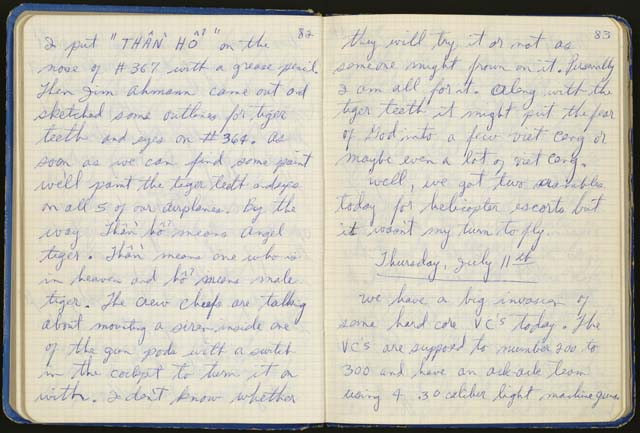 82
I put "THẦN HỔ" on the
nose of #367 with a grease pencil.
Then Jim Ahmann came out and
sketched some outlines for tiger
teeth and eyes on #364. As
soon as we can find some paint
we'll paint the tiger teeth and eyes
on all 5 of our airplanes. By the
way Thần hổ means Angel
tiger. Thần means one who is
in heaven and hổ means male
tiger. The crew chiefs are talking
about mounting a siren inside one
of the gun pods with a switch
in the cockpit to turn it on
with. I don't know whether
83
they will try it or not as
someone might frown on it. Personally
I am all for it. Along with the
tiger teeth it might put the fear
of God into a few viet cong or
maybe even a lot of viet cong.
Well, we got two scrambles
today for helicopter escorts but
it wasn't my turn to fly.
Thursday, July 11th
We have a big invasion of
some hard core VC's today. The
VC's are supposd to number 200 to
300 and have an ack-ack team
using 4 .30 caliber light machine guns